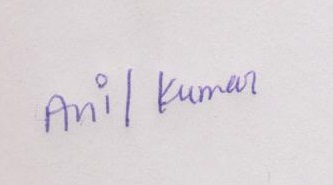 Anil Kumar